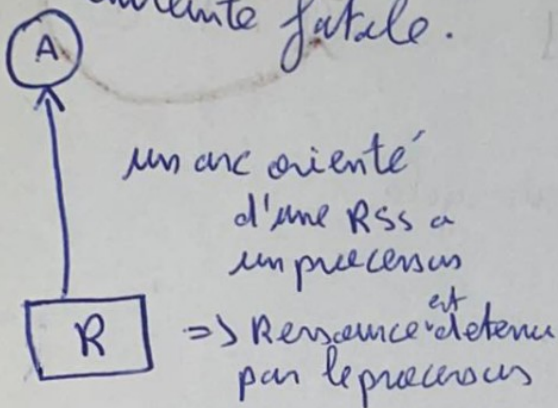 fatale.
A
un arc orienté
d'une Rss a
un processus
R => Ressource est detenu
par le processus